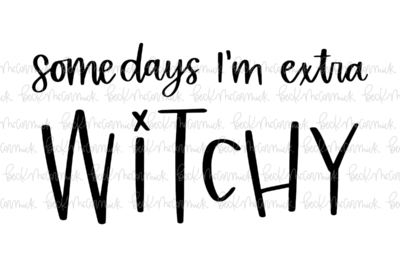 some days I'm extra
WiTCHY